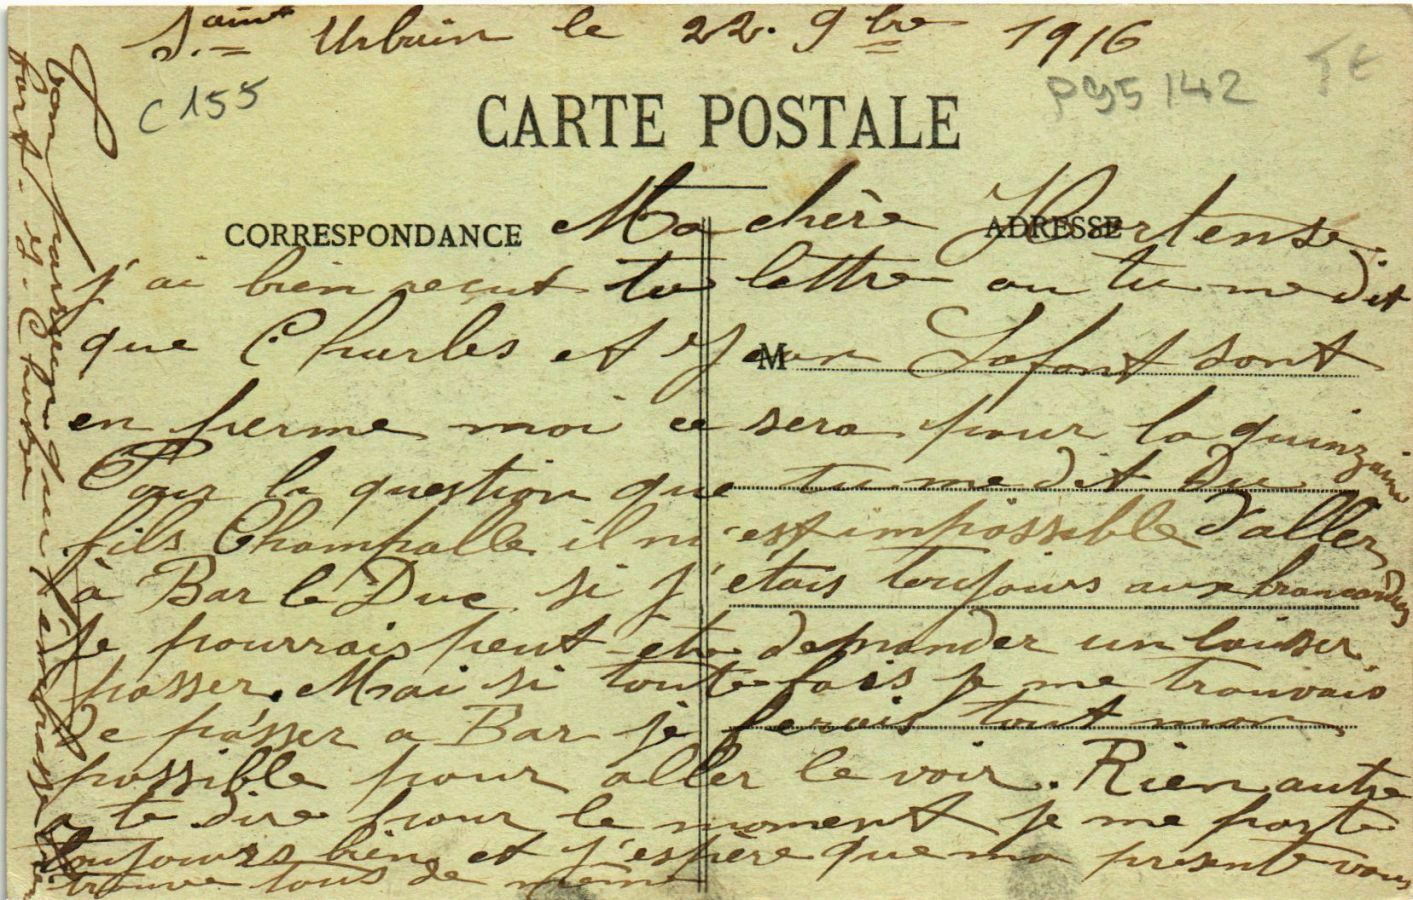 Saint Urbain le 22. 9bre 1916
C155
P95142
TE
CARTE POSTALE
CORRESPONDANCE
ADRESSE
M
Ma chère Hortense.
j'ai bien recut ta lettre ou tu me dit
que Charles et Jean Lafont sont
en perme moi ce sera pour la quinzaine
Pour la question que tu me dit du
fils Champalle il m'est impossible d'aller
à Bar le Duc si j'étais toujours aux brancardiers
je pourrais peut-etre demander un laisser
passer. Mai si toute fois je me trouvais
de passer a Bar je ferais tout mon
possible pour aller le voir. Rien autre
a te dire pour le moment je me porte
toujours bien et j'espère que ma présente vous
trouve tous de même
Ton parrain qui t'embrasse bien
fort. J. Chatre